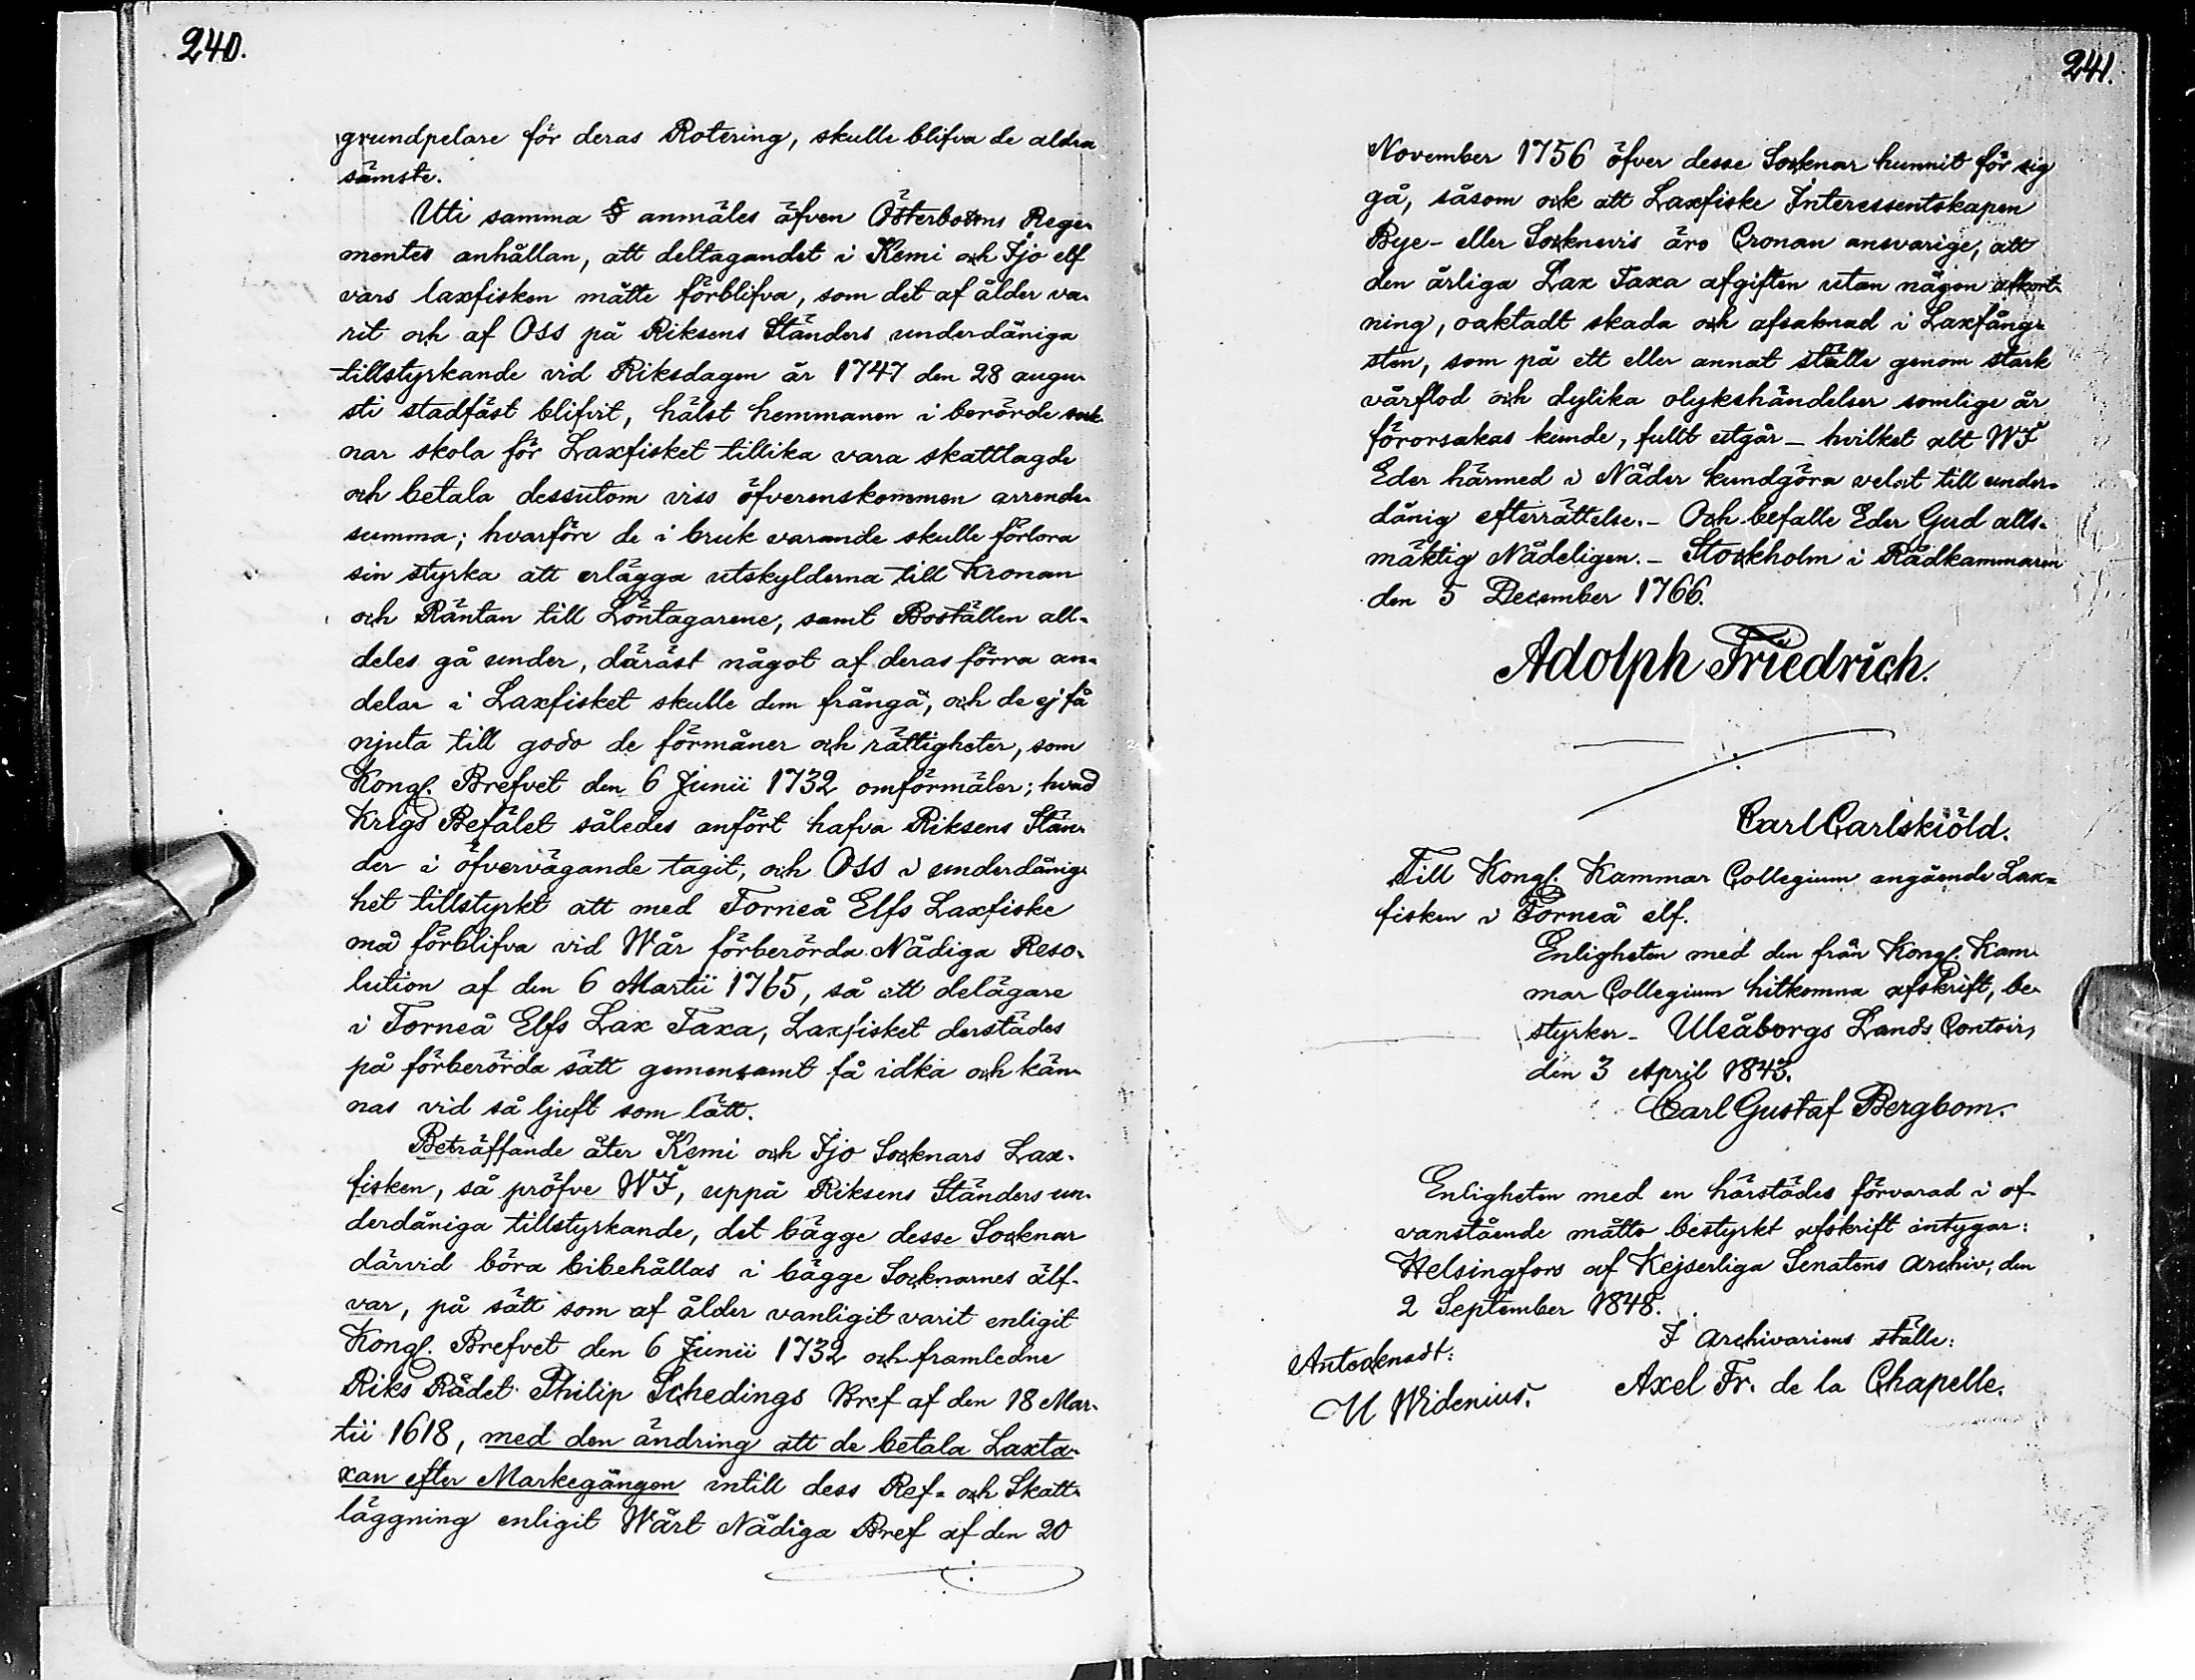 240.
grundpelare för deras Rotering, skulle blifva de aldra
sämste.
Uti samma § anmäles äfven Österbottns Rege-
mentes anhållan, att deltagandet i Kemi och Ijo elf
vars laxfisken måtte förblifva, som det af ålder va-
rit och af Oss på Riksens Ständers underdåniga
tillstyrkande vid Riksdagen år 1747 den 28 augu-
sti stadfäst blifvit, hälst hemmanen i berörde sock-
nar skola för Laxfisket tillika vara skattlagde
och betala dessutom viss öfverenskommen arrende-
summa; hvarföre de i bruk varande skulle förlora
sin styrka att erlägga utskylderna till Kronan
och Räntan till Löntagarene, samt Boställen all-
deles gå under, däräst något af deras förra an-
delar i Laxfisket skulle dem frångå, och de ej få
njuta till godo de förmåner och rättigheter, som
Kongl. Brefvet den 6 Junii 1732 omförmäler; hvad
Krigs Befälet således anfört hafva Riksens Stän-
der i öfvervägande tagit, och Oss i underdånig-
het tillstyrkt att med Torneå Elfs Laxfiske
må förblifva vid Wår förberörda Nådiga Reso-
lution af den 6 Martii 1765, så att delägare
i Torneå Elfs Lax Taxa, Laxfisket derstädes
på förberörda sätt gemensamt få idka och kän-
nas vid så ljuft som lätt.
Beträffande åter Kemi och Ijo Socknars Lax-
fisken, så pröfve WI, uppå Riksens Ständers un-
derdåniga tillstyrkande, det bägge desse Socknar
därvid böra bibehållas i bägge Socknarnes älf-
var, på sätt som af ålder vanligit varit enligit
Kongl. Brefvet den 6 Junii 1732 och framledne
Riks Rådet Philip Schedings Bref af den 18 Mar-
tii 1618, med den ändring att de betala Laxta-
xan efter Markegången intill dess Ref- och Skatt-
läggning enligit Wårt Nådiga Bref af den 20
241.
November 1756 öfver desse Socknar hunnit för sig
gå, såsom ock att Laxfiske Interessentskapen
Bye- eller Socknevis äro Cronan ansvarige, att
den årliga Lax Taxa afgiften utan någon afkort-
ning, oaktadt skada och afsaknad i Laxfång-
sten, som på ett eller annat ställe genom stark
vårflod och dylika olykshändelser somlige år
förorsakas kunde, fullt utgår – hvilket alt WI
Eder härmed i Nåder kundgöra velat till under-
dånig efterrättelse. – Och befalle Eder Gud alls-
mäktig Nådeligen. – Stockholm i Rådkammaren
den 5 December 1766.
Adolph Friedrich.
Carl Carlskiöld.
Till Kongl. Kammar Collegium angående Lax-
fisken i Torneå elf.
Enligheten med den från Kongl. Kam-
mar Collegium hitkomna afskrift, be-
styrker – Uleåborgs Lands Contoir,
den 3 April 1843.
Carl Gustaf Bergbom.
Enligheten med en härstädes förvarad i of-
vanstående måtto bestyrkt afskrift intygar:
Helsingfors af Kejserliga Senatens Archiv, den
2 September 1848.
I Archivariens ställe:
Antecknadt:
Axel Fr. de la Chapelle.
M Widenius.